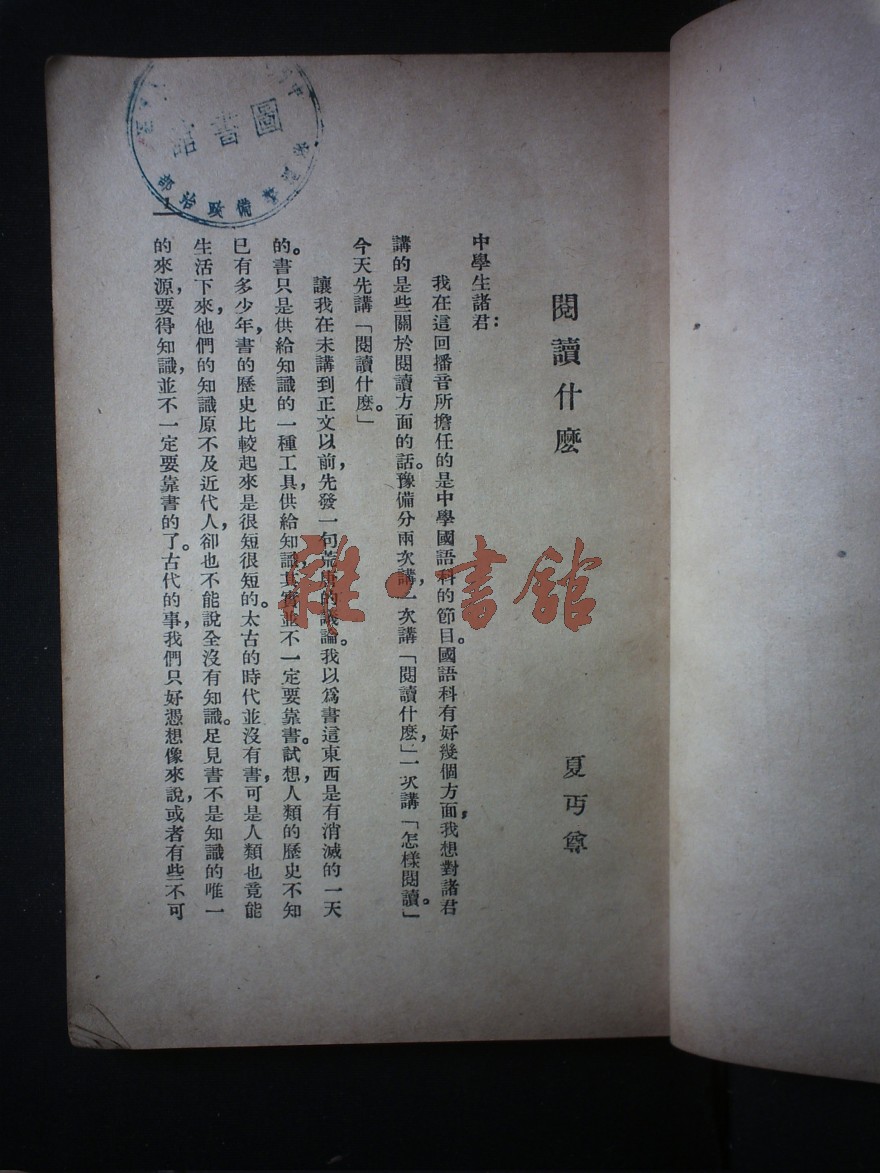 閱讀什麼
夏丏尊
中學生諸君：
我在這回播音所擔任的是中學國語科的節目。國語科有好幾個方面，我想對諸君
講的是些關於閱讀方面的話。豫備分兩次講，一次講「閱讀什麼，」一次講「怎樣閱讀」。
今天先講「閱讀什麼。」
讓我在未講到正文以前，先發一句荒唐的議論。我以爲書這東西是有消滅的一天
的。書只是供給知識的一種工具，供給知識，其實並不一定要靠書。試想，人類的歷史不知
已有多少年，書的歷史比較起來是很短很短的。太古的時代並沒有書，可是人類也竟能
生活下來，他們的知識原不及近代人，卻也不能說全沒有知識。足見書不是知識的唯一
的來源，要得知識，並不一定要靠書的了。古代的事，我們只好憑想像來說，或者有些不可
一
圖書館
雜·書館